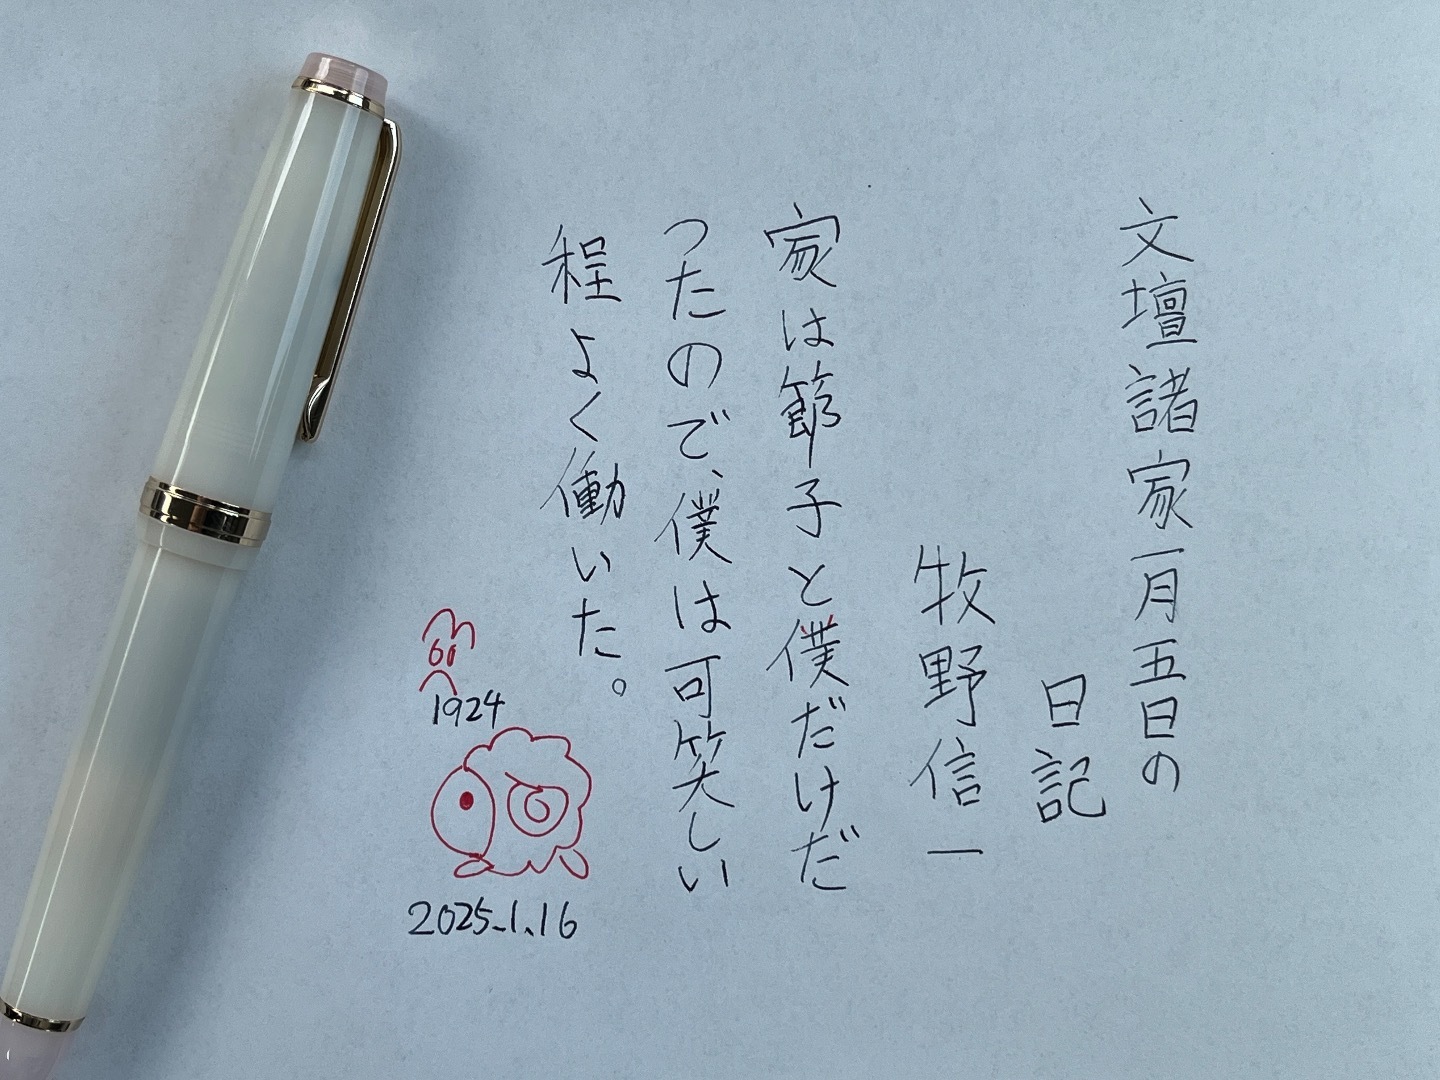 文壇諸家一月五日の
日記
牧野信一
家は節子と僕だけだ
つたので、僕は可笑しい
程よく働いた。
1924
2025.1.16